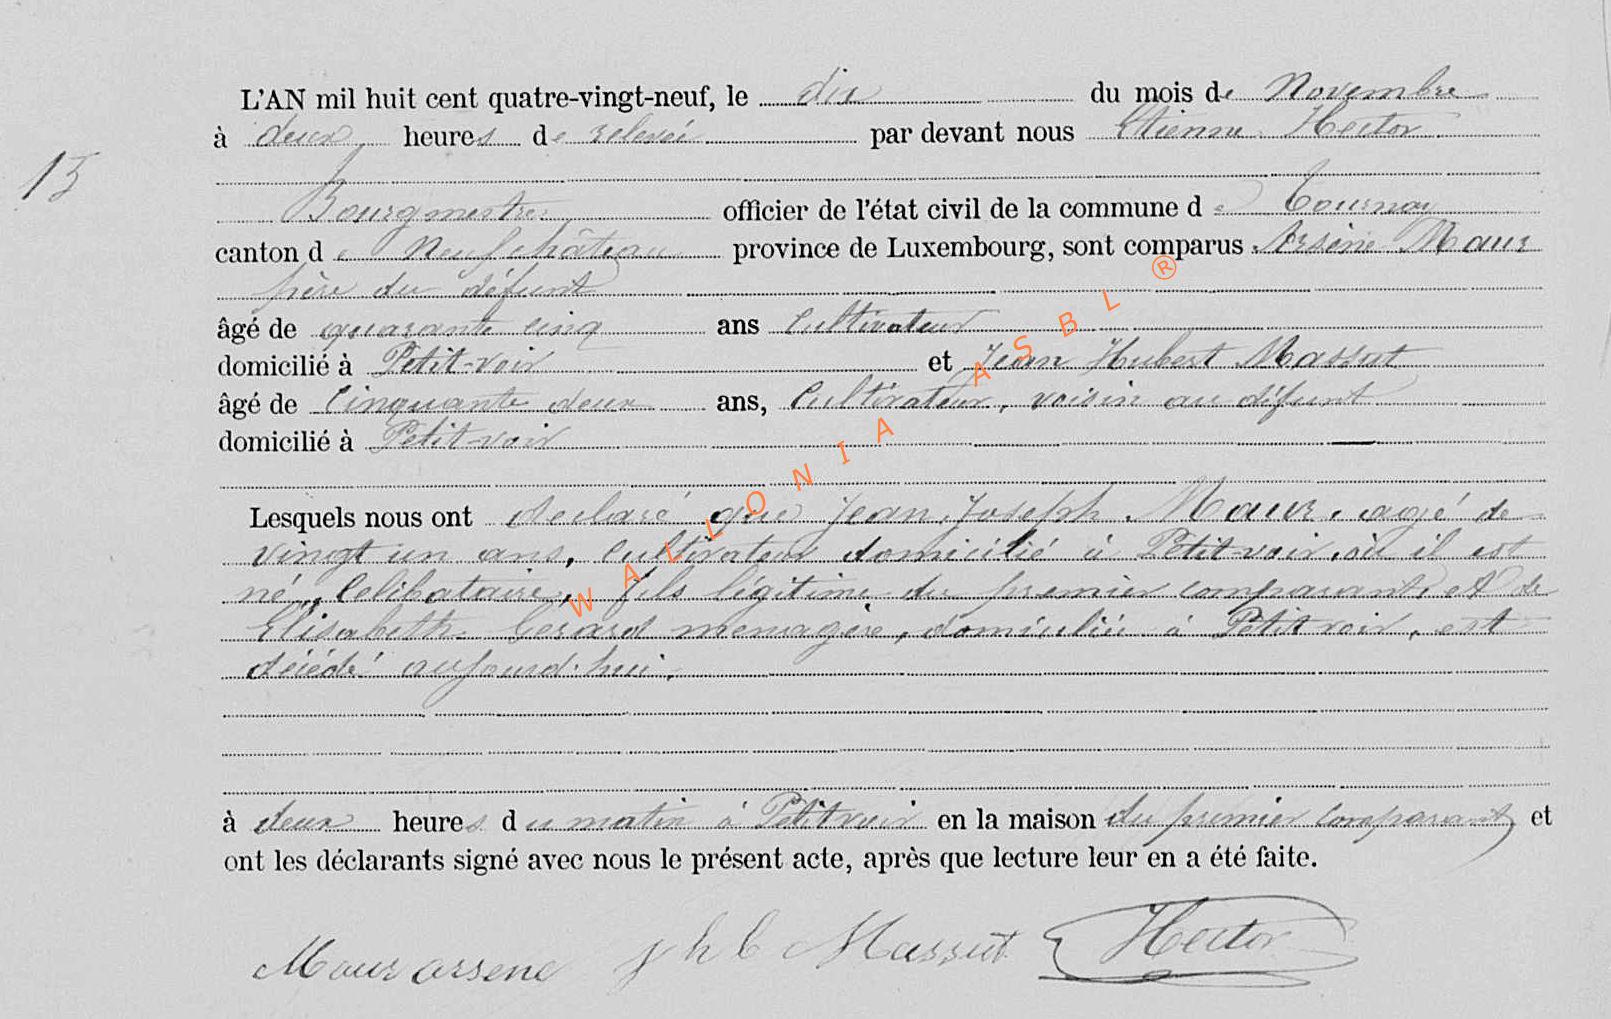 L'AN mil huit cent quatre-vingt-neuf, le dix du mois de Novembre
à deux heures de relevée par devant nous Etienne Hector
15
Bourgmestre officier de l'état civil de la commune de Tournay
canton de Neufchâteau province de Luxembourg, sont comparus Arsène Maur
père du défunt
âgé de quarante cinq ans Cultivateur
domicilié à Petit-voir et Jean Hubert Massut
âgé de Cinquante deux ans, Cultivateur, voisin au défunt
domicilié à Petit-voir
Lesquels nous ont declaré que Jean Joseph Maur, agé de
vingt un ans, Cultivateur domicilié à Petit-voir, où il est
né, Celibataire, fils légitime du premier comparant, et de
Elisabeth Gérard menagère, domiciliée à Petitvoir, est
décédé aujourd'hui,
à deux heures du matin à Petitvoir en la maison du premier Comparant, et
ont les déclarants signé avec nous le présent acte, après que lecture leur en a été faite.
Maur arsene J h b Massut Hector
WALLONIA ASBL ®